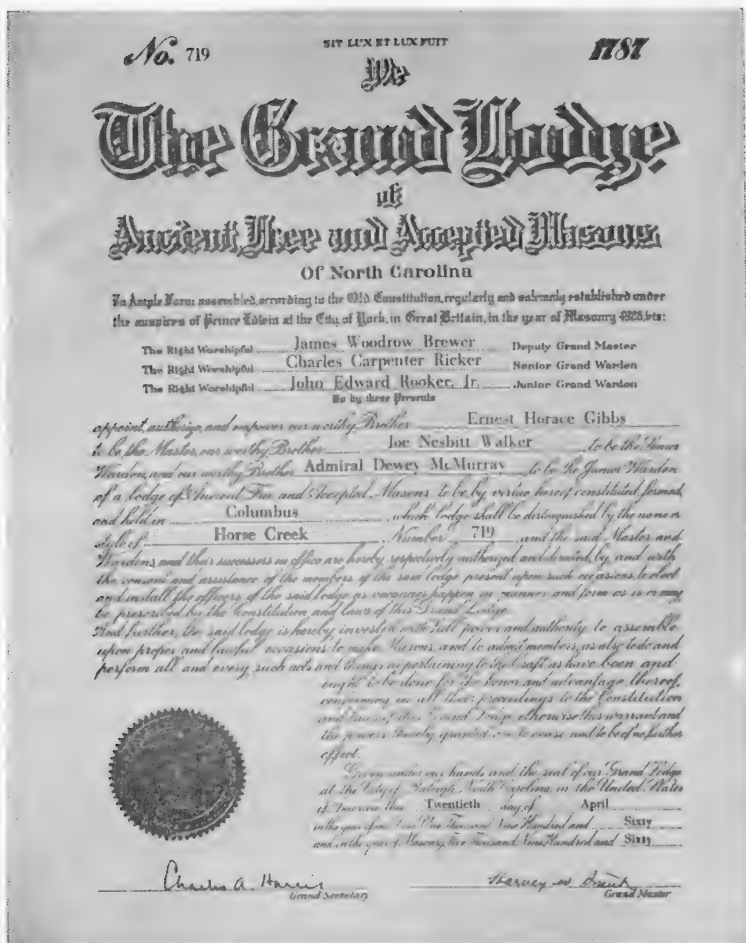 No. 719
SIT LUX ET LUX FUIT
1787
We
The Grand Lodge
of
Ancient, Free and Accepted Masons
Of North Carolina
In Ample Form assembled, according to the Old Constitution, regularly and solemnly established under
the auspices of Prince Edwin at the City of York, in Great Britain, in the year of Masonry 4926, viz:
The Right Worshipful James Woodrow Brewer Deputy Grand Master
The Right Worshipful Charles Carpenter Ricker Senior Grand Warden
The Right Worshipful John Edward Rooker, Jr. Junior Grand Warden
Do by these Presents
appoint, authorize, and empower our worthy Brother Ernest Horace Gibbs
to be the Master, our worthy Brother Joe Nesbitt Walker to be the Senior
Warden, and our worthy Brother Admiral Dewey McMurray to be the Junior Warden
of a lodge of Ancient Free and Accepted Masons to be by virtue hereof constituted, formed,
and held in Columbus which lodge shall be distinguished by the name or
style of Horse Creek Number 719 and the said Master and
Wardens, and their successors in office are hereby respectively authorized and directed, by and with
the consent and assistance of the members of the said lodge present upon such occasions, to elect
and install the officers of the said lodge as vacancies happen in manner and form as is or may
be prescribed by the Constitution and laws of this Grand Lodge.
And further, the said lodge is hereby invested with full power and authority to assemble
upon proper and lawful occasions to make Masons, and to admit members, as also to do and
perform all and every such acts and things appertaining to the Craft as have been and
ought to be done for the honor and advantage thereof,
conforming in all their proceedings to the Constitution
and laws of this Grand Lodge otherwise this warrant and
the powers thereby granted are to cease and to be of no further
effect.
Given under our hands and the seal of our Grand Lodge
at the City of Raleigh, North Carolina, in the United States
of America this Twentieth day of April
in the year of our Lord One Thousand Nine Hundred and Sixty
and in the year of Masonry, Five Thousand Nine Hundred and Sixty
Charles A. Harris
Grand Secretary
Harvey W. Smith
Grand Master